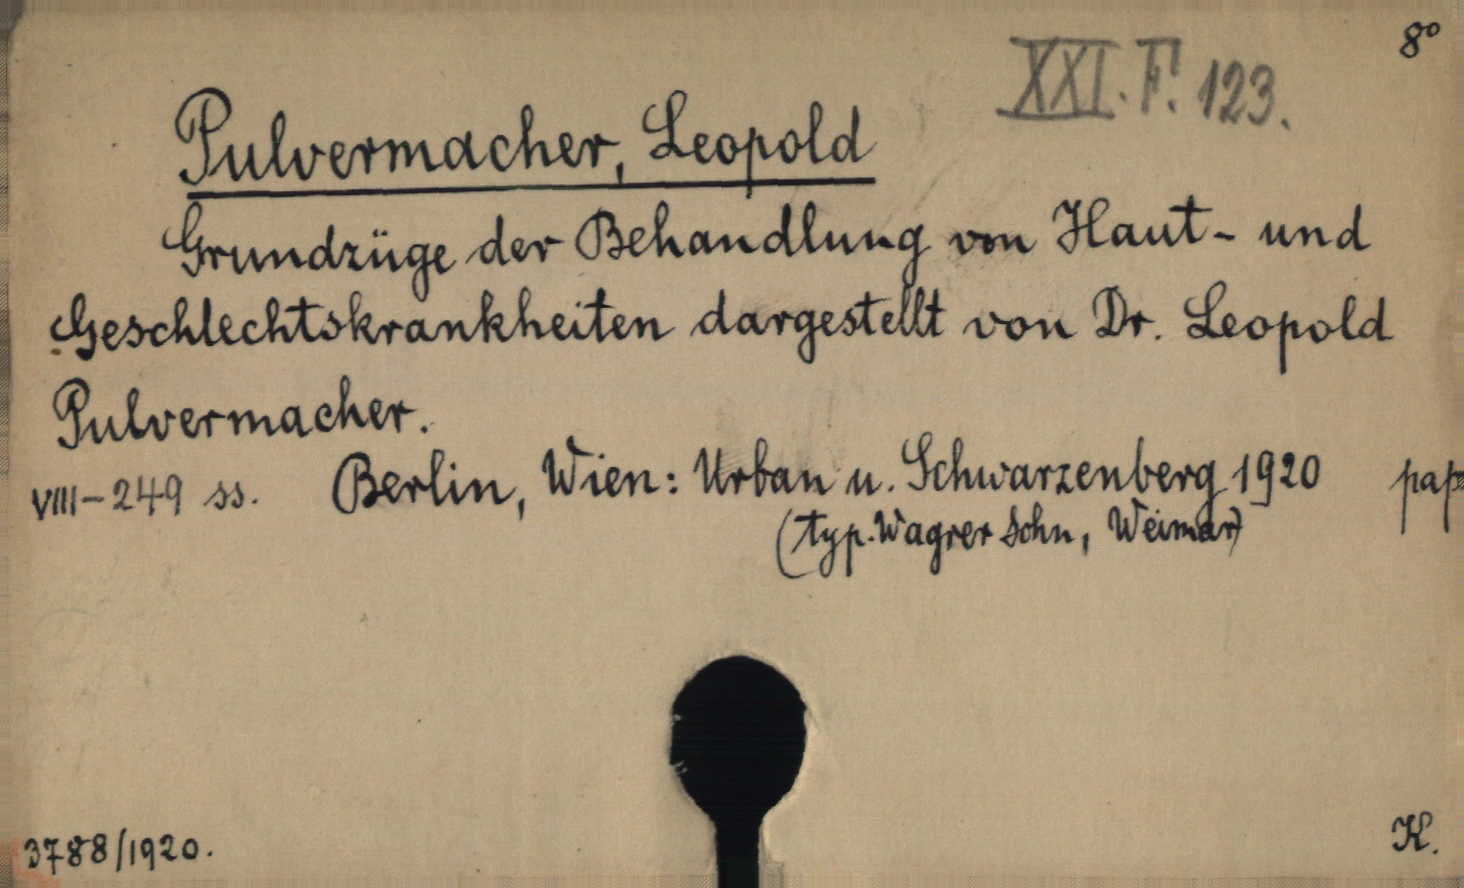 8°
XXI. F. 123.
Pulvermacher, Leopold
Grundzüge der Behandlung von Haut- und
Geschlechtskrankheiten dargestellt von Dr. Leopold
Pulvermacher.
VIII-249 ss. Berlin, Wien: Urban u. Schwarzenberg 1920 pap
(typ. Wagner Sohn, Weimar)
3788/1920.
K.